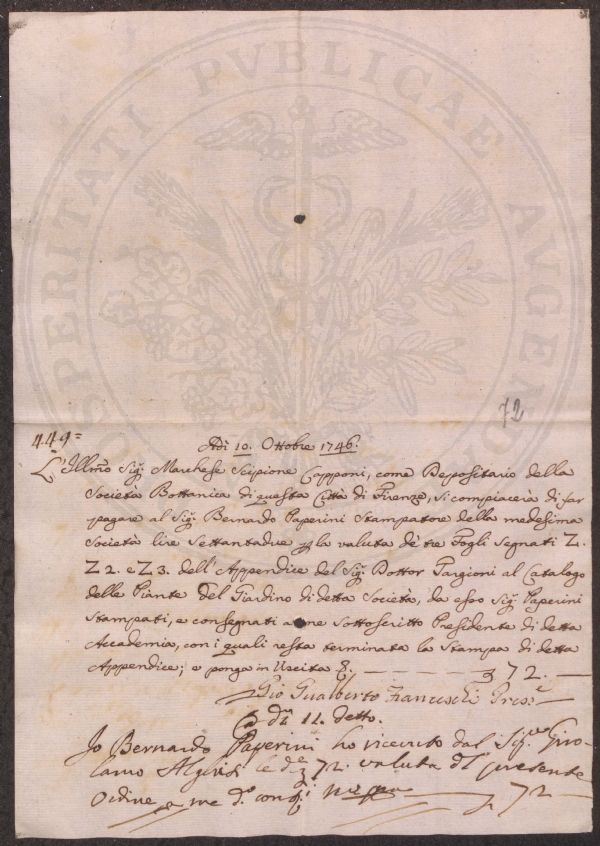 PROSPERITATI PVBLICAE AVGENDAE
72
449=
Adì 10. Ottobre 1746.
L'Illmo Sig: Marchese Scipione Capponi, come Depositario della
Società Bottanica di questa Città di Firenze, si compiacerà di far
pagare al Sig: Bernardo Paperini Stampatore della medesima
Società lire Settantadue p la valuta de tre Fogli segnati Z.
Z 2. e Z 3. dell'Appendice del Sig: Dottor Targioni al Catalogo
delle Piante del Giardino di detta Società, da esso Sig: Paperini
Stampati, e consegnati a me Sottoscritto Presidente di detta
Accademia, con i quali resta terminata la Stampa di detta
Appendice; e ponga in Uscita 72.—
Gio Gualberto Franceschi Presse
A dì 11. detto.
Io Bernardo Paperini ho ricevuto dal Sig:re Giro-
lamo le d:e 72. valuta del presente
Ordine a me d:o 72